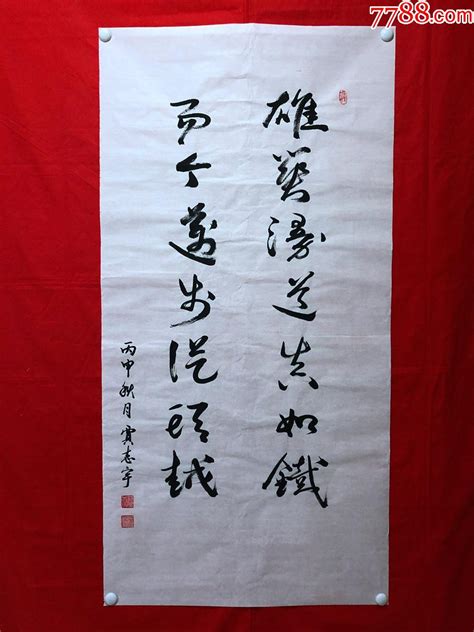 7788.com
雄關漫道真如鐵
而今邁步從頭越
丙申秋月志宇